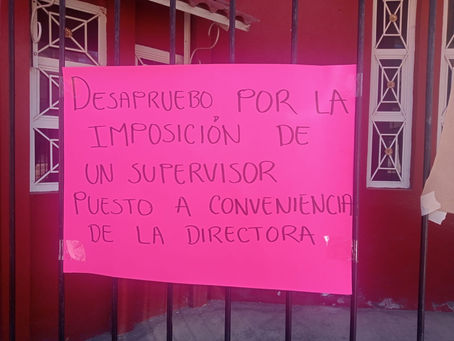 DESAPRUEBO POR LA
IMPOSICIÓN DE
UN SUPERVISOR
PUESTO A CONVENIENCIA
DE LA DIRECTORA